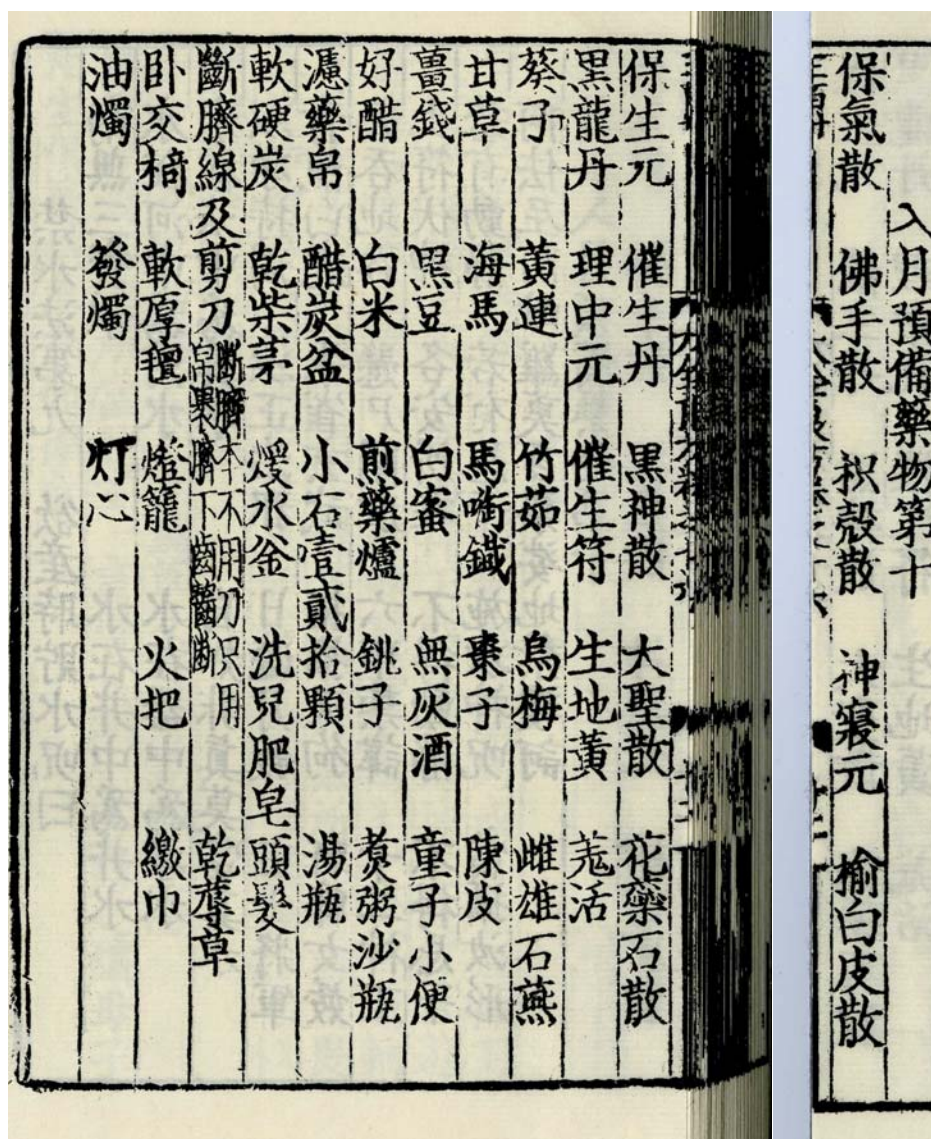 入月預備藥物第十
保氣散 佛手散 枳殼散 神寢元 榆白皮散
保生元 催生丹 黑神散 大聖散 花蘂石散
黑龍丹 理中元 催生符 生地黃 羌活
葵子 黃連 竹茹 烏梅 雌雄石燕
甘草 海馬 馬啣鐵 棗子 陳皮
薑錢 黑豆 白蜜 無灰酒 童子小便
好醋 白米 煎藥爐 銚子 煑粥沙瓶
濾藥帛 醋炭盆 小石壹貳拾顆 湯瓶
軟硬炭 乾柴茅 煖水釜 洗兒肥皂 頭髮
斷臍線及剪刀 斷臍本不用刀只用帛裹臍下齒齧斷 乾蓐草
卧交椅 軟厚氊 燈籠 火把 繳巾
油燭 發燭 灯心